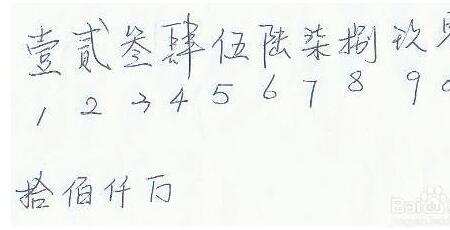 壹贰叁肆伍陆柒捌玖
1 2 3 4 5 6 7 8 9
拾佰仟万
Baidu